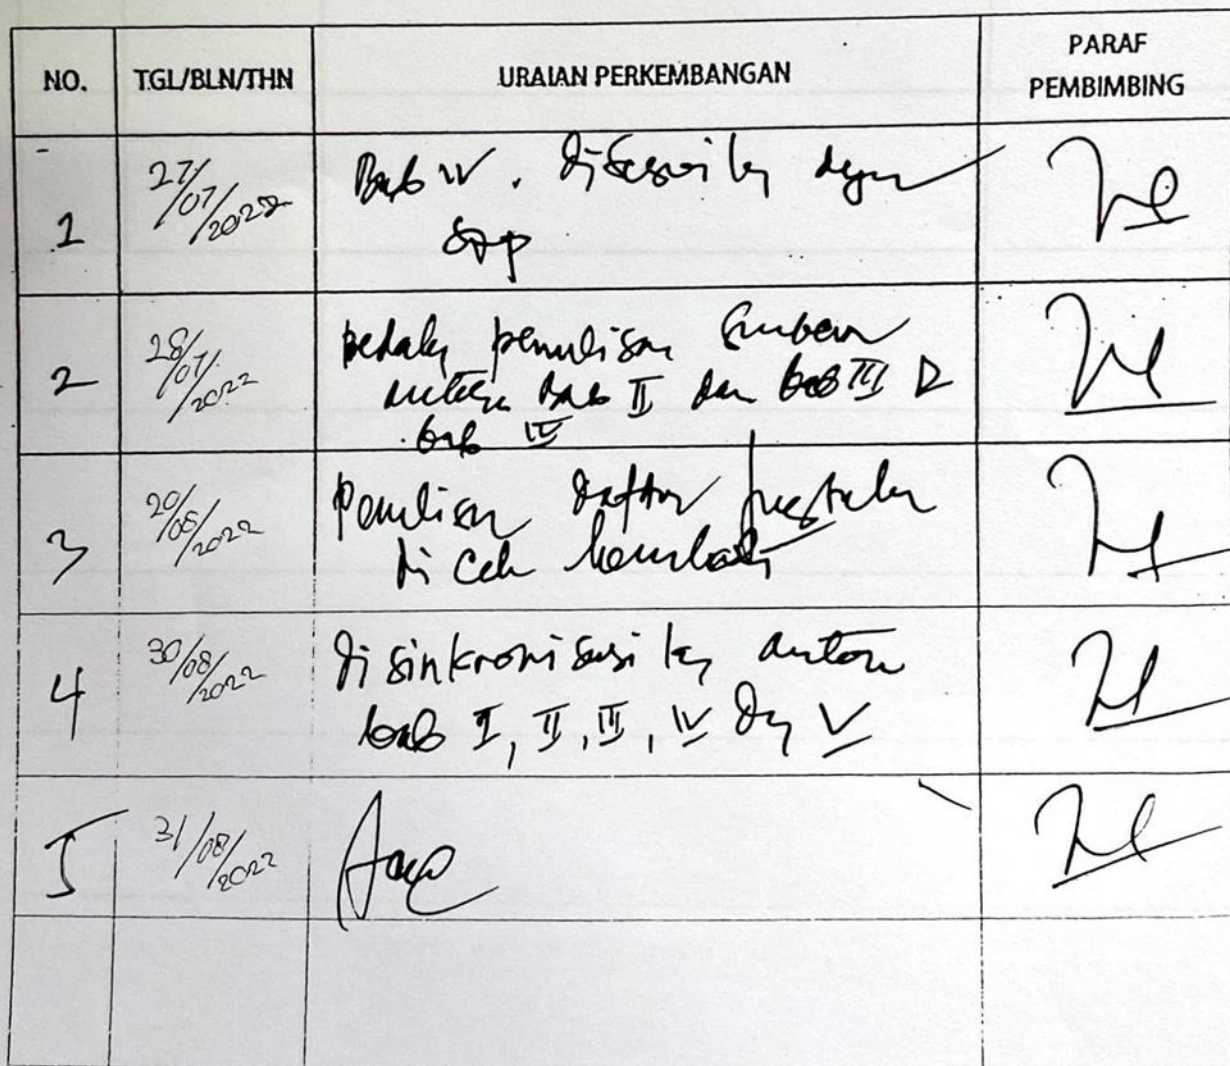 NO. TGL/BLN/THN URAIAN PERKEMBANGAN PARAF
PEMBIMBING
1 27/07/2022 Bab IV. disesuaikan dengan
2 28/07/2022 penulisan sumber
antara Bab II dan bab III
bab IV
3 20/08/2022 Penulisan daftar pustaka
di cek kembali
4 30/08/2022 disinkronisasikan antara
bab I, II, III, IV dan V
5 31/08/2022 Acc